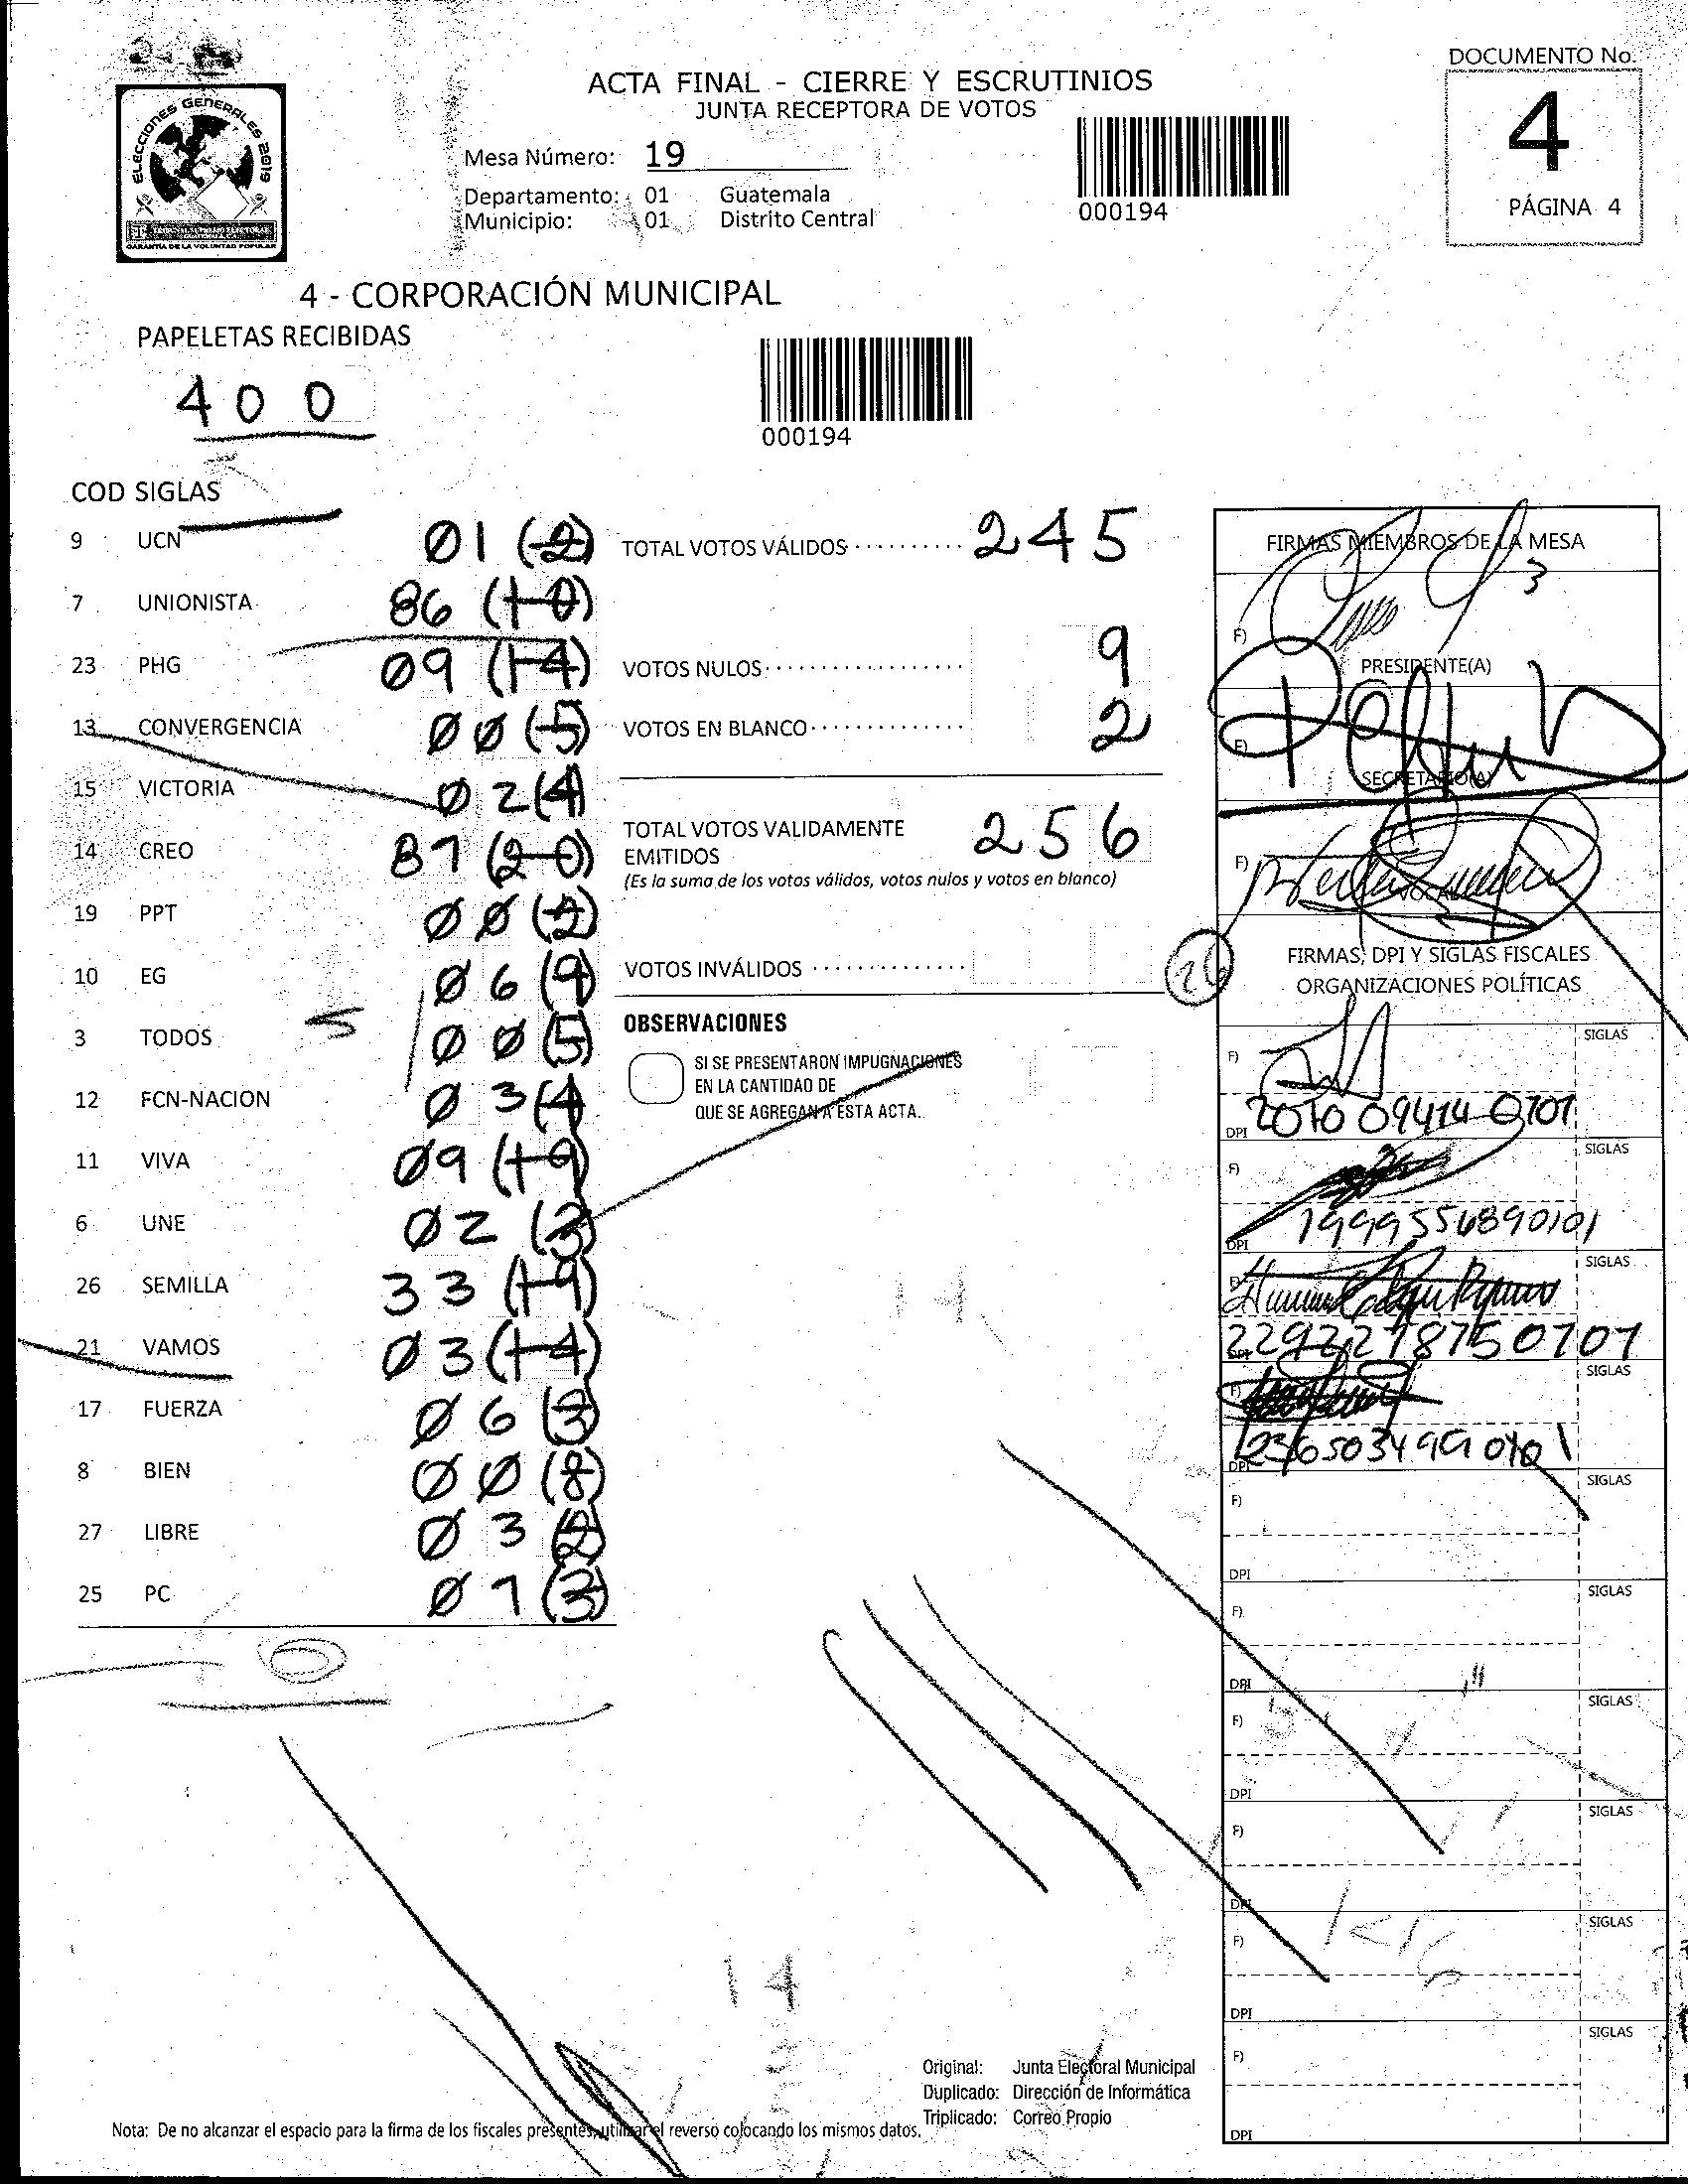 DOCUMENTO No.
ACTA FINAL - CIERRE Y ESCRUTINIOS
JUNTA RECEPTORA DE VOTOS
ELECCIONES GENERALES 2019
GARANTIA DE LA VOLUNTAD POPULAR
Mesa Número: 19
Departamento: 01 Guatemala
Municipio: 01 Distrito Central
000194
4
PÁGINA 4
4 - CORPORACIÓN MUNICIPAL
PAPELETAS RECIBIDAS
400
000194
COD SIGLAS
9 UCN 01 (2)
7 UNIONISTA 86 (10)
23 PHG 09 (14)
13 CONVERGENCIA 00 (5)
15 VICTORIA 02 (4)
14 CREO 87 (20)
19 PPT 00 (2)
10 EG 06 (9)
3 TODOS 00 (5)
12 FCN-NACION 03 (4)
11 VIVA 09 (19)
6 UNE 02 (3)
26 SEMILLA 33 (19)
21 VAMOS 03 (14)
17 FUERZA 06 (3)
8 BIEN 00 (8)
27 LIBRE 03 (2)
25 PC 01 (3)
TOTAL VOTOS VÁLIDOS 245
VOTOS NULOS 9
VOTOS EN BLANCO 2
TOTAL VOTOS VALIDAMENTE EMITIDOS 256
(Es la suma de los votos válidos, votos nulos y votos en blanco)
VOTOS INVÁLIDOS
OBSERVACIONES
SI SE PRESENTARON IMPUGNACIONES
EN LA CANTIDAD DE
QUE SE AGREGAN A ESTA ACTA.
FIRMAS MIEMBROS DE LA MESA
F)
PRESIDENTE(A)
F)
SECRETARIO(A)
F)
VOCAL
26
FIRMAS, DPI Y SIGLAS FISCALES
ORGANIZACIONES POLÍTICAS
F) SIGLAS
DPI
F) SIGLAS
DPI 1999556890101
F) SIGLAS
DPI
F) SIGLAS
DPI
F) SIGLAS
DPI
F) SIGLAS
DPI
F) SIGLAS
DPI
F) SIGLAS
DPI
F) SIGLAS
DPI
F) SIGLAS
DPI
14
Original: Junta Electoral Municipal
Duplicado: Dirección de Informática
Triplicado: Correo Propio
Nota: De no alcanzar el espacio para la firma de los fiscales presentes, utilizar el reverso colocando los mismos datos.